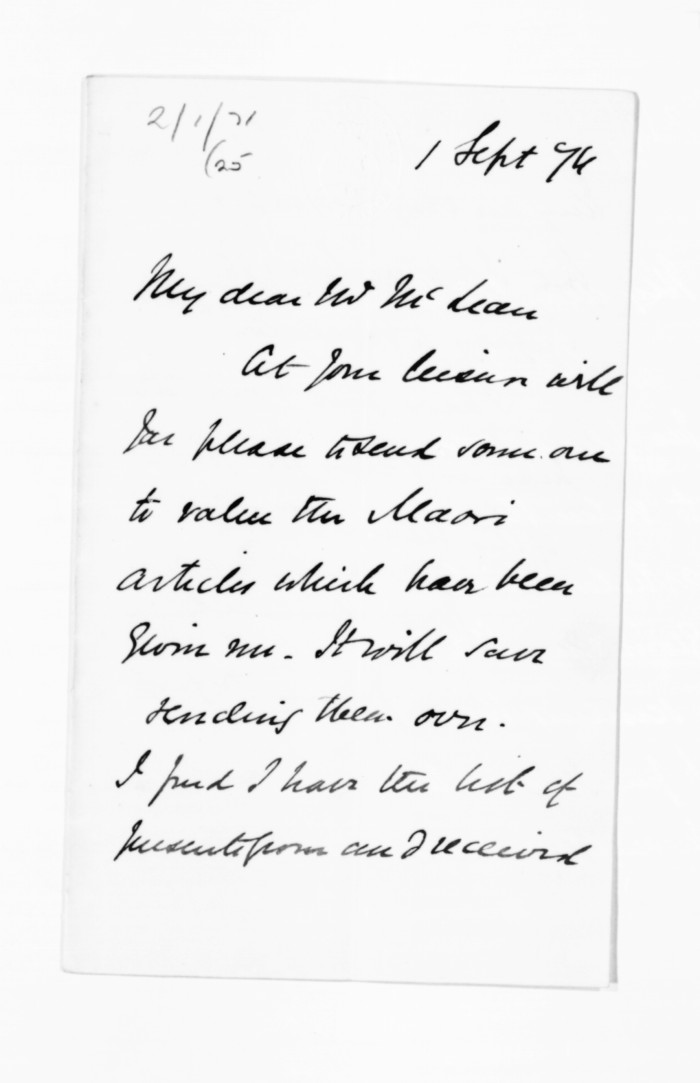 2/1/71
(25
1 Sept 74
My dear Mr McLean
At your leisure will
you please to send some one
to value the Maori
articles which have been
given me. It will save
sending them over.
I find I have the list of
presents from and received